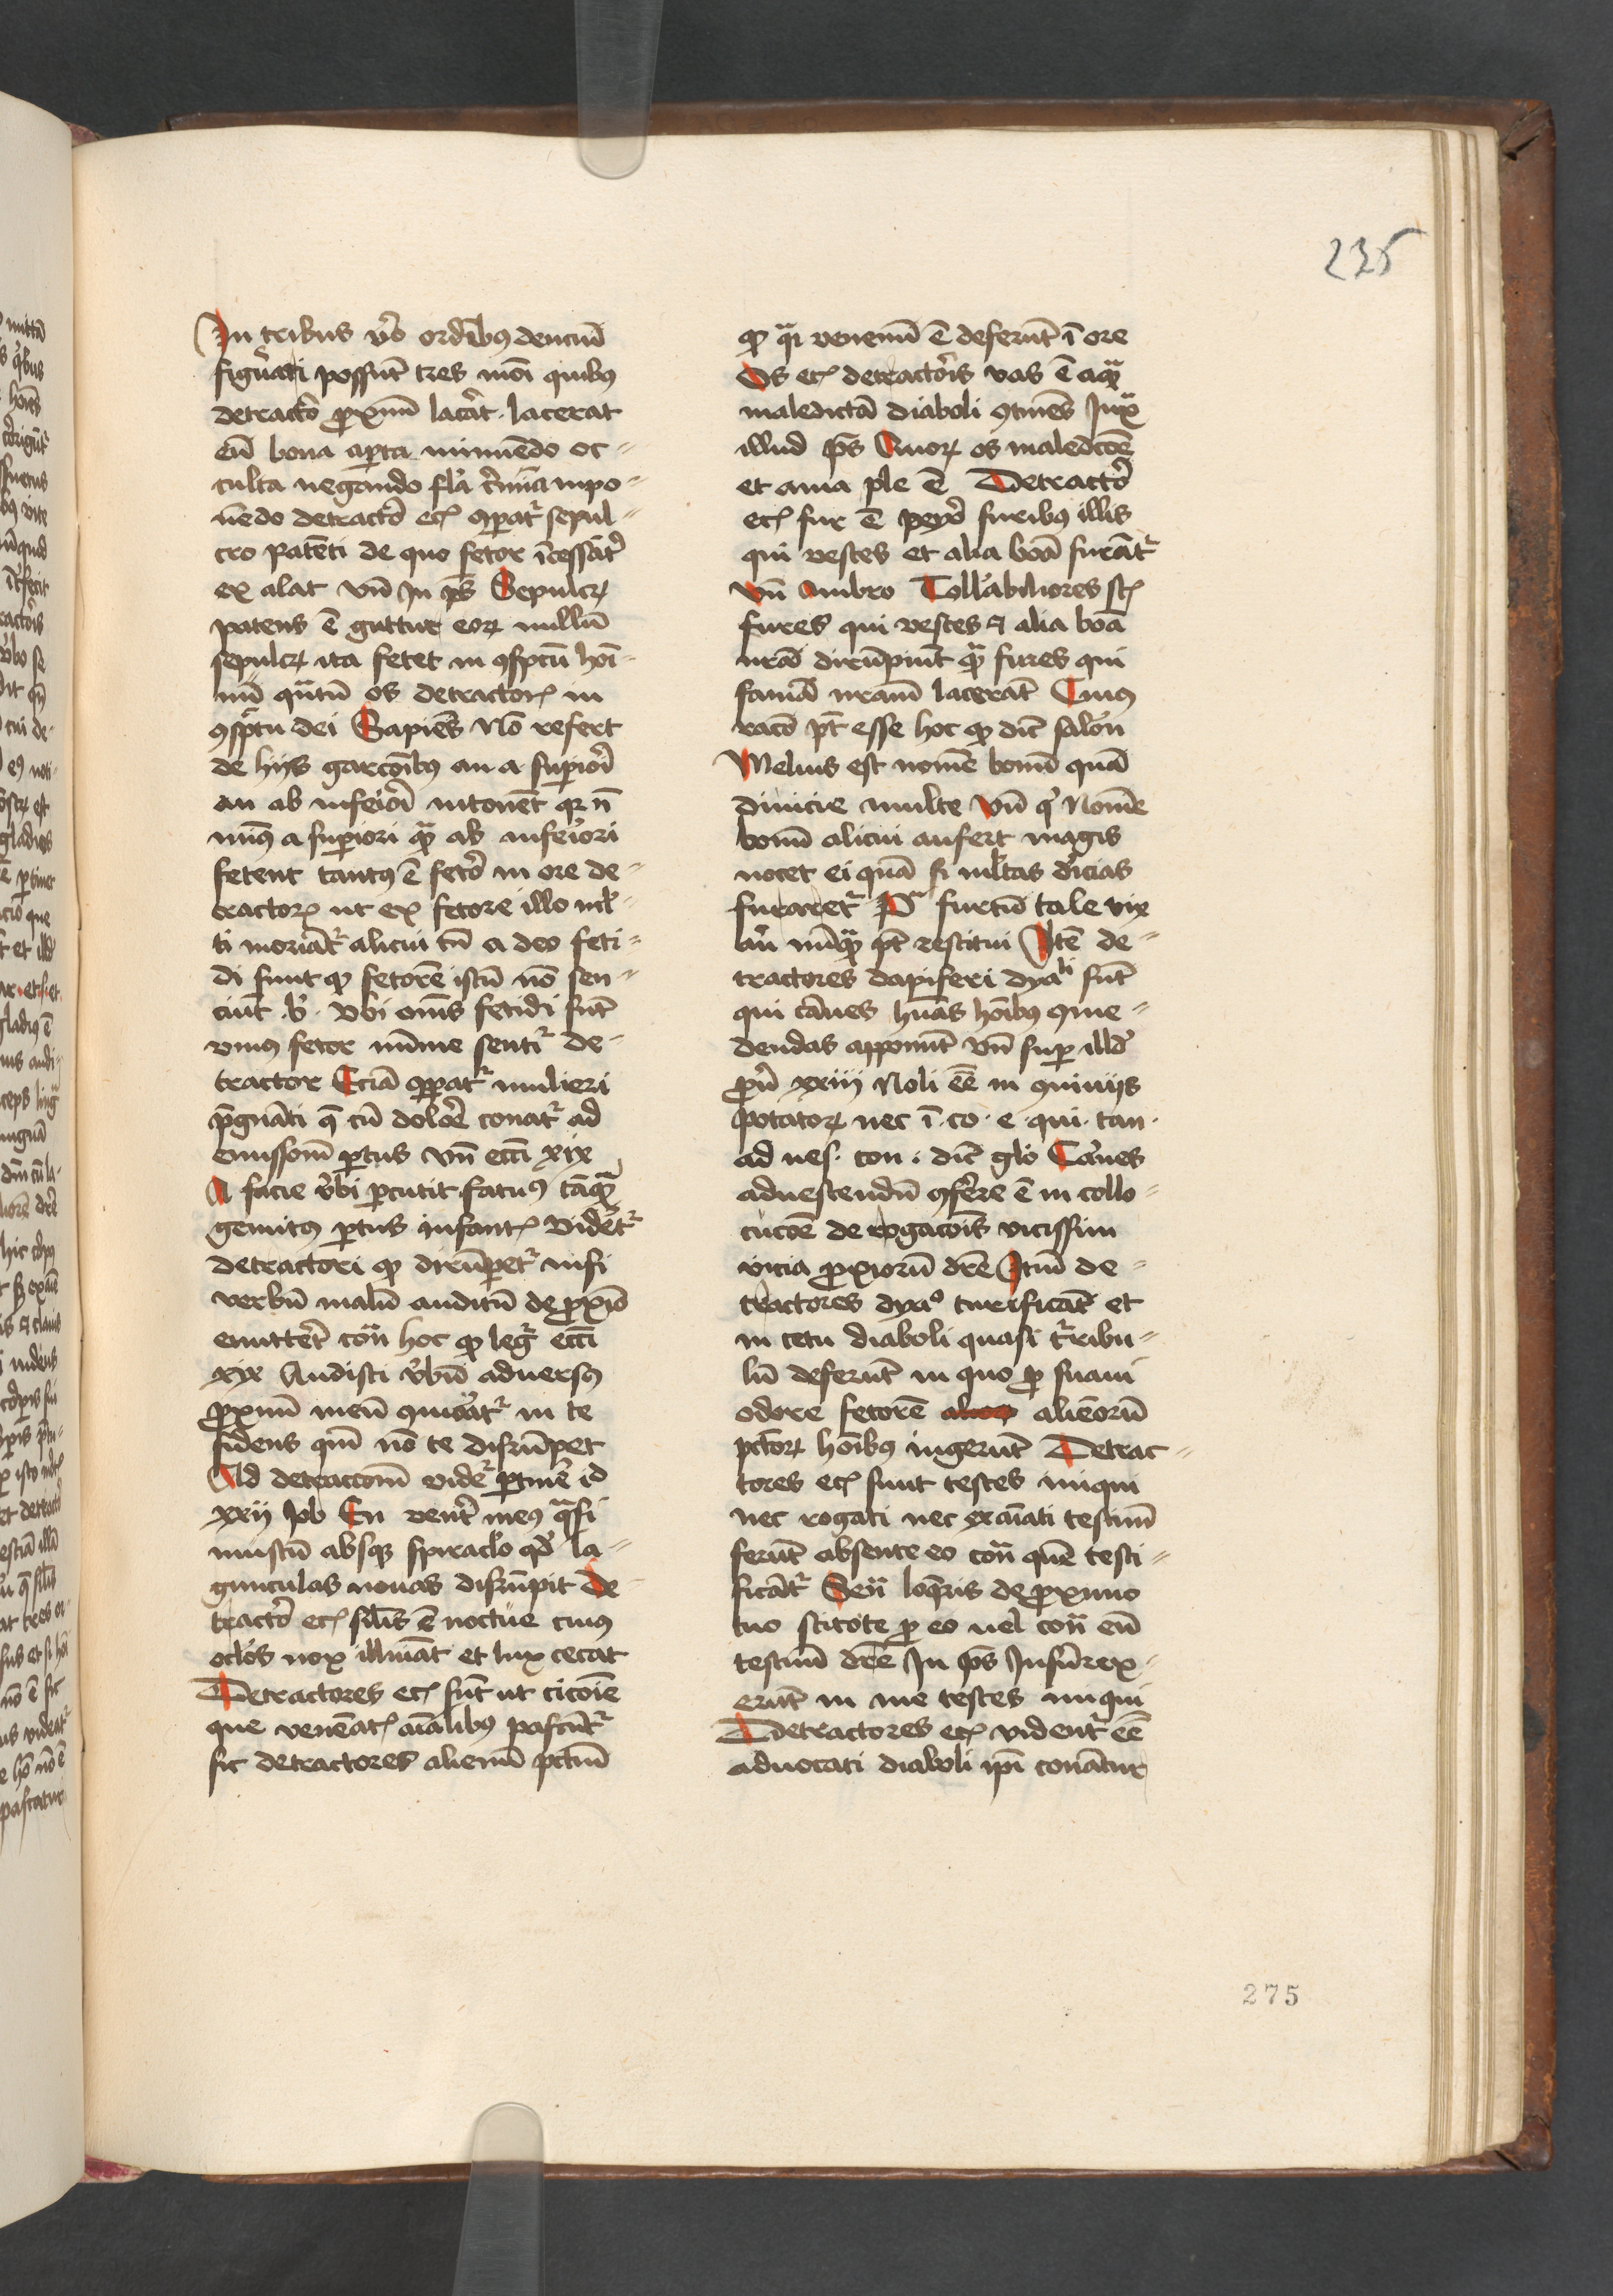 235
In tribus vͦo ordībus denciū
figurari possunt tres modi quibus
detractor proximū lacerat. lacerat
eū bona aperta minuēdo oc-
culta negando falsa crimina inpo-
nēdo detractor eciam comparatur sepul-
cro patēti de quo fetor īcessāter
ex alat Vn̄ in ps̄ Sepulcrum
patens ē guttur eorum nullū
sepulcrum ita fetet in conspectu homi-
nū quātū os detractoris in
conspectu dei Sapiēs nō refert
de hijs garcōībus an a superiori
an ab inferiori intonēt quia n̄
minus a superiori quam ab inferiori
fetent tantus ē fetor in ore de-
tractoris ut ex fetore illo mul-
ti moriātur alicui tn̄ a deo feti-
di sunt quod fetorē istū nō sen-
ciūt .b. Vbi om̄s fetidi sūt
vnius fetor minime sentitur de-
tractor Eciā comparatur mulieri
pregnāti que cū dolore conatur ad
emissionē partus vn̄ ecci xix
A facie verbi percutit fatuus tāquam
gemitus partus infantis videtur
detractori quod dirūpetur nisi
verbū malū auditū de proximo
emitteret contra hoc quod legitur ecci
xix Audisti verbū adversus
proximū meū commoriatur in te
fidens quoniam nō te disrūpet
Ad detraccionē videtur pertinere id
xxij Job En venter meus quasi
mustū absque spiraculo quod la-
gunculas novas disrūpit De
tractor eciam similis ē noctue cuius
oculos nox illuminat et lux cecat
Detractores eciam sūt ut ciconie
que venēatis aīalibus pascūtur
sic detractores alienū peccatum
quod quasi venenū ē deferūt ī ore
Os eciam detractoris vas ē aquam
maledictā diaboli continēs Juxta
illud ps̄ Quorum os maledictōe
et amaritudine plenum ē Detractor
eciam fur ē peyor furibus illis
qui vestes et alia bona furātur
Vn̄ Ambro Tollerabiliores sunt
fures qui vestes et alia bona
nostra dirūpiūt quam fures qui
famā nostram lacerāt Cuius
racō potest esse hoc quod dicit salomon
Melius est nomē bonū quā
divicie multe Vn̄ qui Nomē
bonū alicui aufert magis
nocet ei quā si multas divicias
furaretur furtū tale vix
aut nūquam potest restitui Itē de-
tractores dapiferi dyaboli sūt
qui carnes humanas homībus come-
dendas apponūt vn̄ super illud
prov xxiij Noli eē in conviviis
potatorum nec ī. co. e. qui. car.
ad ves. con. dicit glo Carnes
ad vescendū conferre ē in collo-
cucōe derogacōis vicissim
vicia proximorū dicere Item de-
tractores dyabolo turificāt et
in cetu diaboli quasi turribu-
lū deferūt in quo pro suavi
odore fetorē alienorū
peccatorum homībus ingerūt Detrac-
tores eciam sunt testes iniqui
nec rogati nec examinati testimonium
ferūt absente eo contra quē testi-
ficātur Seneca loqueris de proximo
tuo scitote pro eo vel contra eū
testimonium dicere In ps̄ Insurrex-
erūt in me testes iniqui
Detractores eciam videntur eē
advocati diaboli ipsi conātur
275